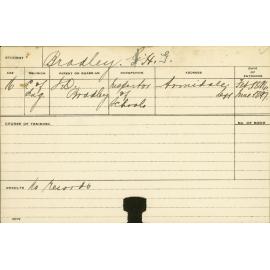 STUDENT Bradley. H. G.
AGE RELIGION PARENT OR GUARDIAN OCCUPATION ADDRESS DATE OF ENTRANCE
16 C of J. D. Inspector Armidale
Eng Bradley of Sept June 1887
Schools
COURSE OF TRAINING. NO. OF BOOK
RESULTS No Records